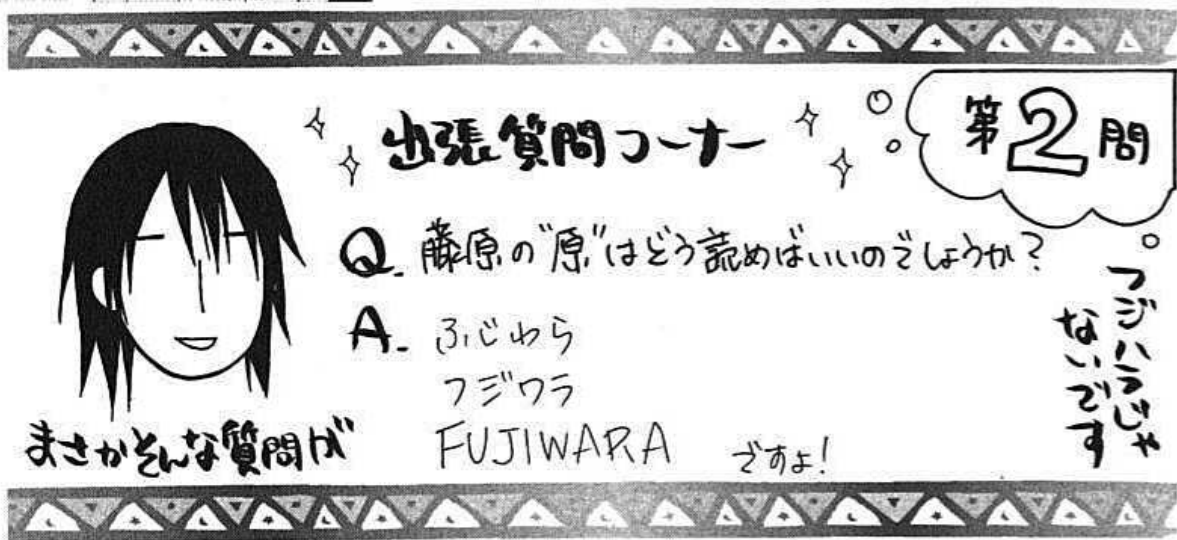 出張質問コーナー
第2問
Q. 藤原の"原"はどう読めばいいのでしょうか?
A. ふじわら
フジワラ
FUJIWARA ですよ!
フジハラじゃ
ないです
まさかそんな質問が